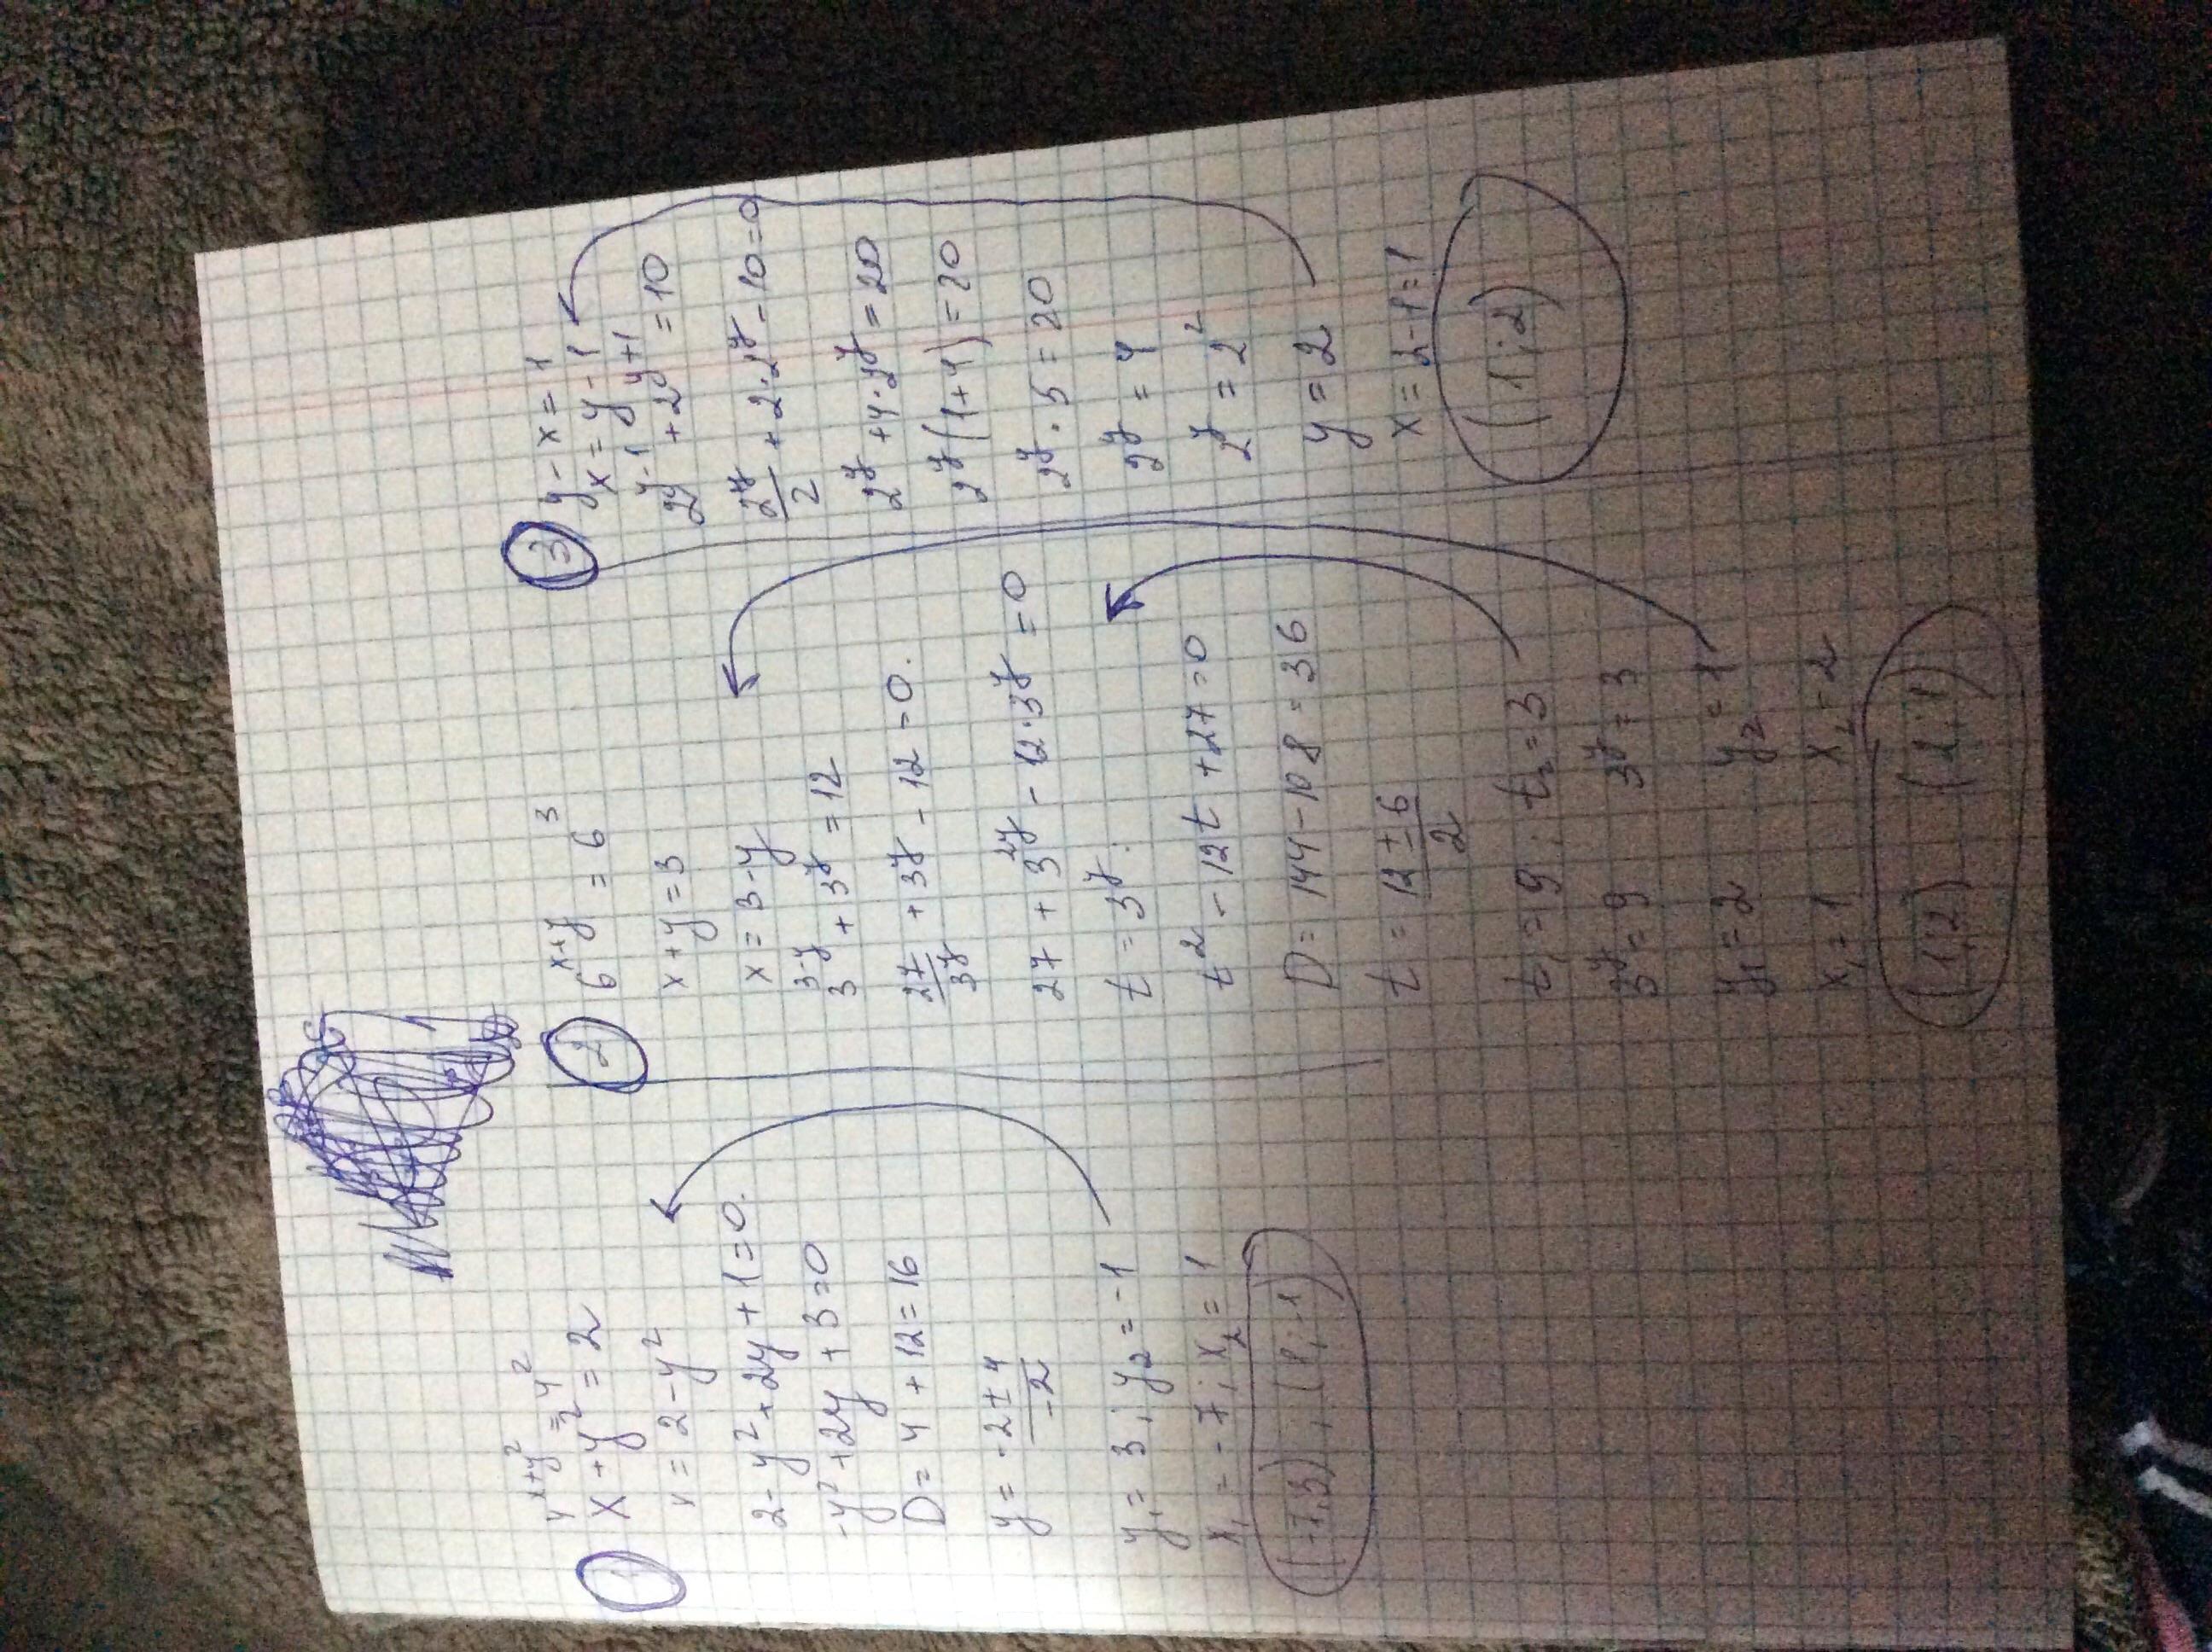 1
4^{x+y^2} = 4^2
x + y^2 = 2
x = 2 - y^2
2 - y^2 + 2y + 1 = 0.
-y^2 + 2y + 3 = 0
D = 4 + 12 = 16
y = \frac{-2 ± 4}{-2}
y_1 = 3; y_2 = -1
x_1 = -7; x_2 = 1
(-7;3), (1;-1)
2
6^{x+y} = 6^3
x + y = 3
x = 3 - y
3^{3-y} + 3^y = 12
\frac{27}{3^y} + 3^y - 12 = 0.
27 + 3^{2y} - 12·3^y = 0
t = 3^y:
t^2 - 12t + 27 = 0
D = 144 - 108 = 36
t = \frac{12 ± 6}{2}
t_1 = 9; t_2 = 3
3^y = 9 3^y = 3
y_1 = 2 y_2 = 1
x_1 = 1 x_2 = 2
(1;2) (2;1)
3
y - x = 1
x = y - 1
2^{y-1} + 2^{y+1} = 10
\frac{2^y}{2} + 2·2^y - 10 = 0
2^y + 4·2^y = 20
2^y(1+4) = 20
2^y · 5 = 20
2^y = 4
2^y = 2^2
y = 2
x = 2 - 1 = 1
(1;2)